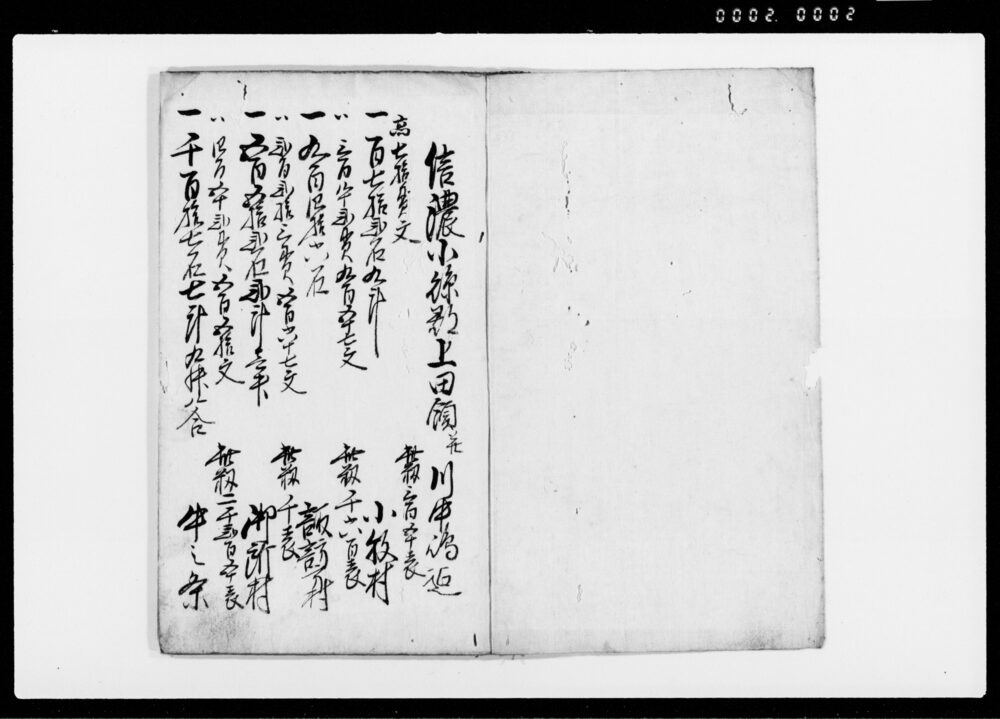 0002. 0002
信濃小縣郡上田領并川中嶋迄
高七拾貫文 此籾三百五十表
一百七拾弐石九斗 小牧村
〃三百廿弐貫九百五十七文 此籾千六百表
一九百四拾六石 諏訪村
〃弐百弐拾三貫五百六十七文 此籾千表
一五百五拾弐石弐斗 御所村
〃四百五十弐貫六百五拾文 此籾二千弐百五十表
一千百拾七石七斗九升八合 中之条